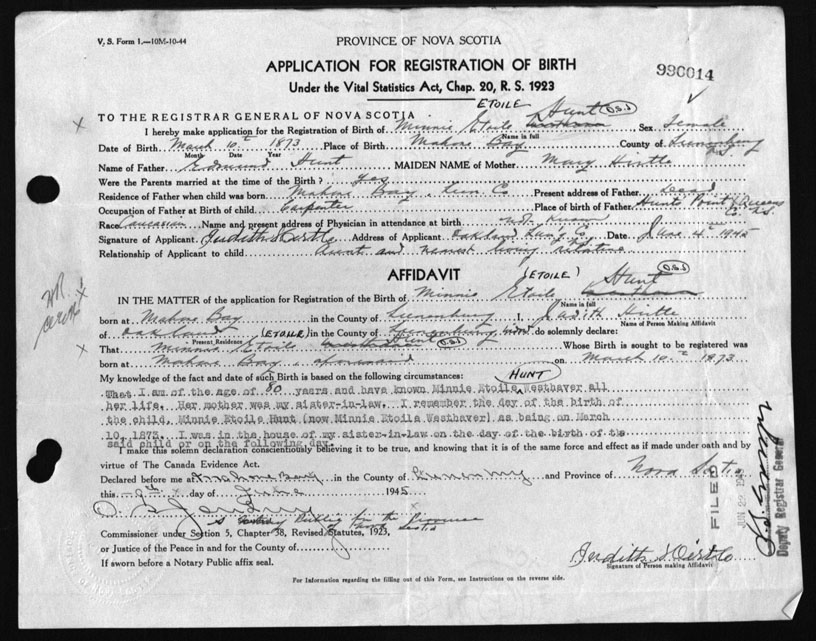 V. S. Form 1.—10M-10-44
PROVINCE OF NOVA SCOTIA
990014
APPLICATION FOR REGISTRATION OF BIRTH
Under the Vital Statistics Act, Chap. 20, R. S. 1923
ETOILE Hunt
TO THE REGISTRAR GENERAL OF NOVA SCOTIA
I hereby make application for the Registration of Birth of Minnie Etoile Sex Female
Name in full
Date of Birth March 10th 1873 Place of Birth Mahone Bay County of Lunenburg
Month Date Year
Name of Father Edmund Hunt MAIDEN NAME of Mother Mary Hirtle
Were the Parents married at the time of Birth? Yes
Residence of Father when child was born Mahone Bay, Lun. Co. Present address of Father Dead
Occupation of Father at Birth of child Carpenter Place of birth of Father Hunts Point Queens Co. N.S.
Race Caucasian Name and present address of Physician in attendance at birth not known
Signature of Applicant Judith Hirtle Address of Applicant Oakland Lun'g Co. Date June 4th 1945
Relationship of Applicant to child Aunt and nearest living relative
AFFIDAVIT
(ETOILE) Hunt
IN THE MATTER of the application for Registration of the Birth of Minnie Etoile
Name in full
born at Mahone Bay in the County of Lunenburg I, Judith Hirtle
Name of Person Making Affidavit
of Oakland (ETOILE) in the County of Lunenburg now do solemnly declare:
Present Residence
That Minnie Etoile Hunt Whose Birth is sought to be registered was
born at Mahone Bay, aforesaid on March 10th 1873
My knowledge of the fact and date of such Birth is based on the following circumstances: HUNT
That I am of the age of 80 years and have known Minnie Etoile Westhaver all
her life. Her mother was my sister-in-law. I remember the day of the birth of
the child, Minnie Etoile Hunt (now Minnie Etoile Westhaver) as being on March
10, 1873. I was in the house of my sister-in-law on the day of the birth of the
said child or on the following day.
I make this solemn declaration conscientiously believing it to be true, and knowing that it is of the same force and effect as if made under oath and by
virtue of The Canada Evidence Act.
Declared before me at Mahone Bay in the County of Lunenburg and Province of Nova Scotia
this day of June 1945
Notary Public for the Province
of Nova Scotia
Commissioner under Section 5, Chapter 38, Revised Statutes, 1923,
or Justice of the Peace in and for the County of
If sworn before a Notary Public affix seal.
Judith Hirtle
Signature of Person making Affidavit
For Information regarding the filling out of this Form, see Instructions on the reverse side.
FILED
Deputy Registrar General